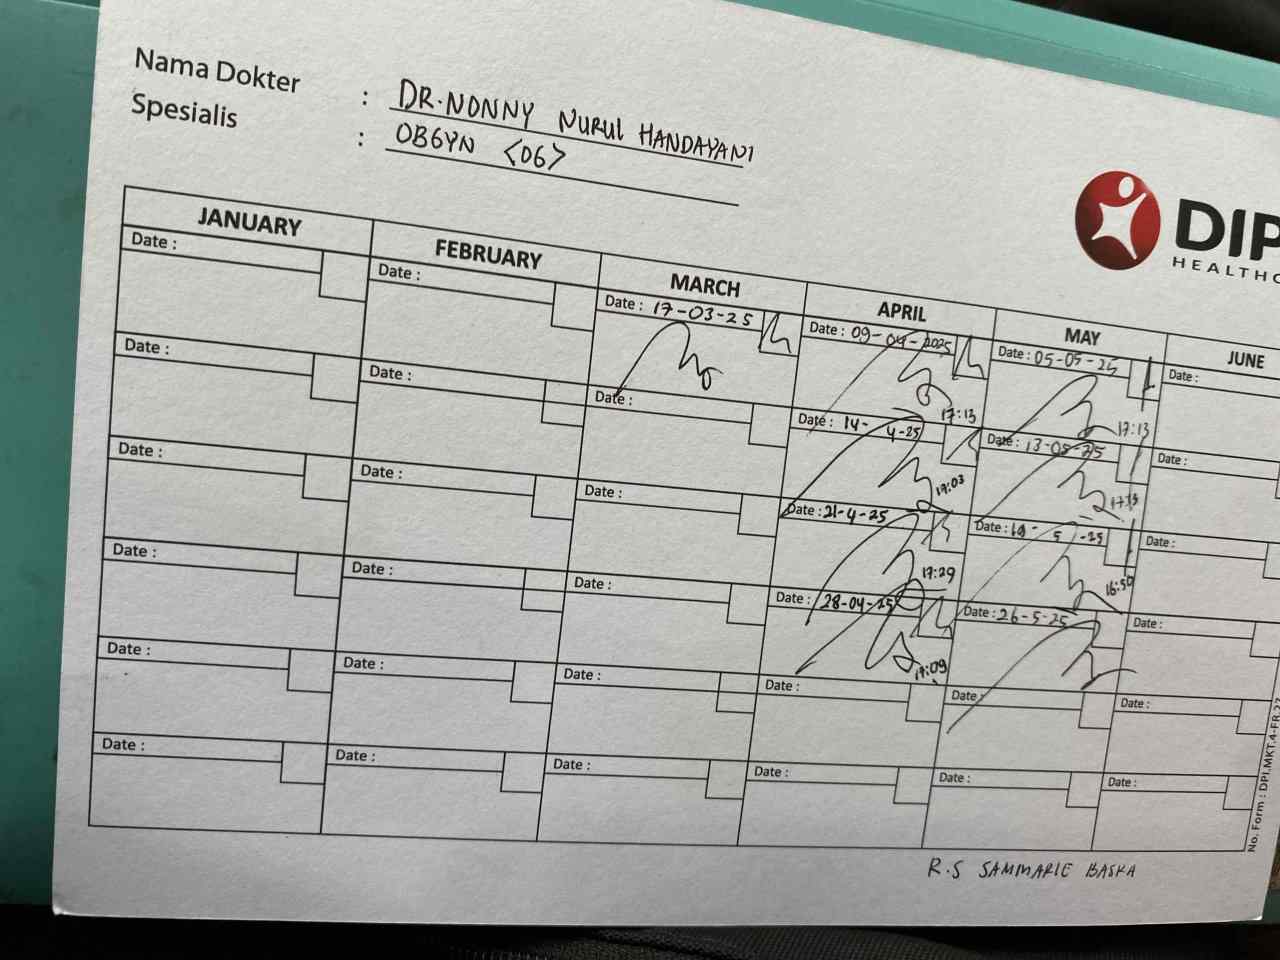 Nama Dokter : DR. NONNY NURUL HANDAYANI
Spesialis : OBGYN <06>
DIP
HEALTHC
JANUARY FEBRUARY MARCH APRIL MAY JUNE
Date : Date : Date : 17-03-25 Date : 09-04-2025 Date : 05-05-25 Date :
17:13 17:13
Date : Date : Date : Date : 14- 4-25 Date : 13-05-25 Date :
17:03 17:13
Date : Date : Date : Date : 21-4-25 Date : 19- 5 -25 Date :
17:29 16:59
Date : Date : Date : Date : 28-04-25 Date : 26-5-25 Date :
17:09
Date : Date : Date : Date : Date : Date :
Date : Date : Date : Date : Date : Date :
No. Form : DPI.MKT.4-FR.27
R.S SAMMARIE BASRA